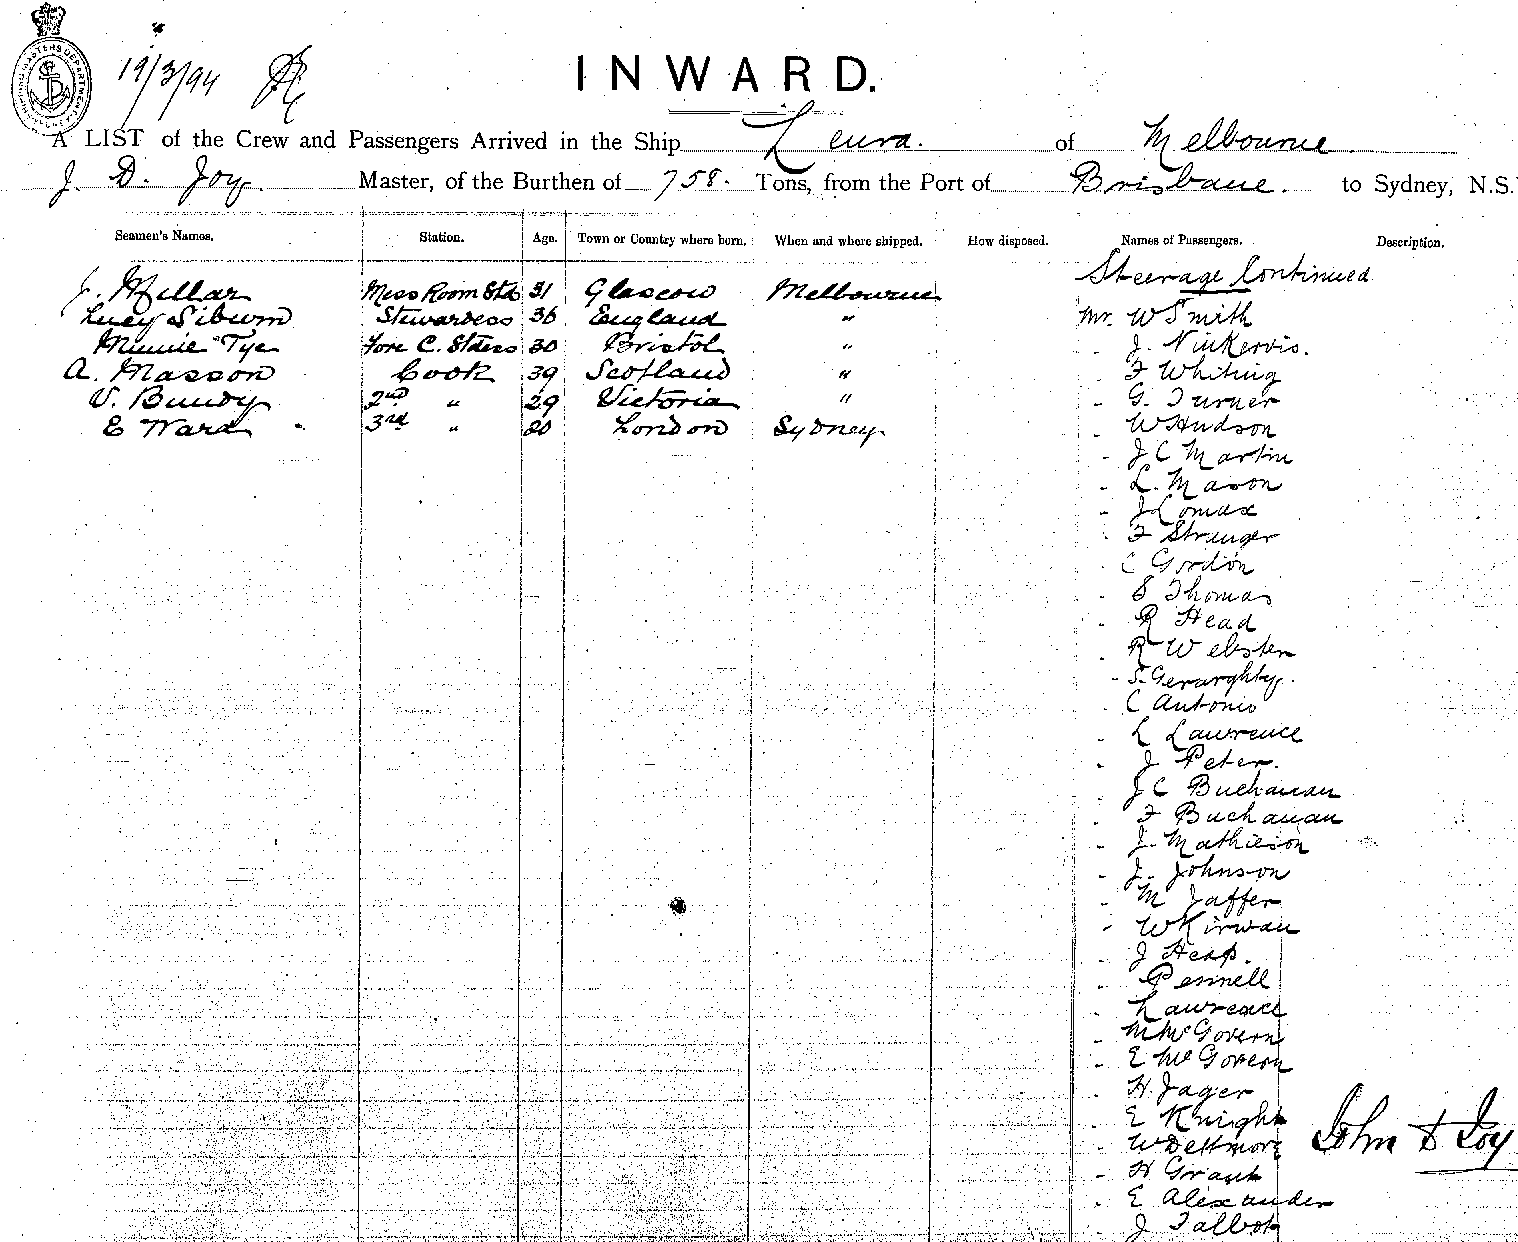 19/3/94
INWARD.
A LIST of the Crew and Passengers Arrived in the Ship Leura. of Melbourne
J. D. Joy. Master, of the Burthen of 758. Tons, from the Port of Brisbane. to Sydney, N.S.
Seamen's Names. Station. Age. Town or Country where born. When and where shipped. How disposed. Names of Passengers. Description.
Steerage Continued
J. Millar Mess Room Std 31 Glascow Melbourne
Lucy Siburn Stewardess 36 England "
Mr. W Smith
Minnie Tye Fore C. Stdess 30 Bristol "
J. Ninkervis.
A. Masson Cook 39 Scotland "
F Whiting
V. Bundy 2nd " 29 Victoria "
G. Turner
E Ward 3rd " 20 London Sydney
W Hudson
J C Martin
L. Mason
J Lomax
F Stranger
C Gordon
S Thomas
R Head
R Webster
S. Geraghty.
C Antonio
L Lawrence
J Peter.
J C Buchanan
F Buchanan
J. Mathieson
J. Johnson
M Jaffer
W Kirwan
J Heap.
Pennell
Lawrence
M McGovern
E McGovern
H. Jager
E Knight
John D Joy
W Dettmore
H Grant
E Alexander
J Talbot